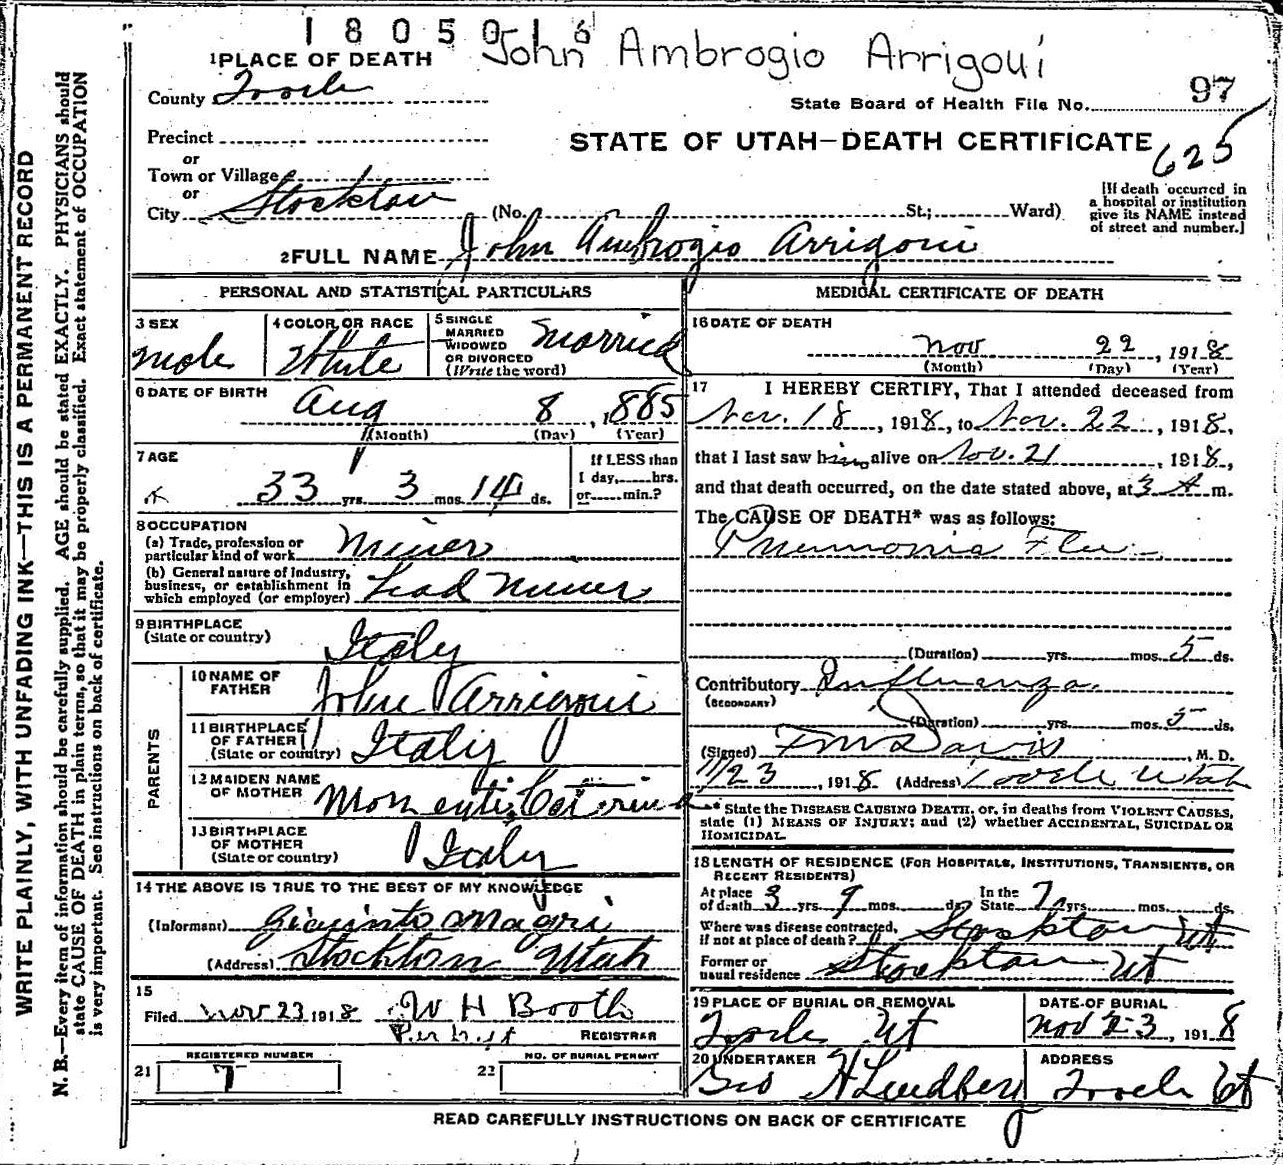 1805016
John Ambrogio Arrigoni
1 PLACE OF DEATH
County Tooele
State Board of Health File No. 97
Precinct
STATE OF UTAH—DEATH CERTIFICATE
625
or
Town or Village
or
City Stockton (No. St.; Ward)
[If death occurred in
a hospital or institution
give its NAME instead
of street and number.]
2 FULL NAME John Ambrogio Arrigoni
PERSONAL AND STATISTICAL PARTICULARS
3 SEX
Male
4 COLOR OR RACE
White
5 SINGLE
MARRIED
WIDOWED
OR DIVORCED
(Write the word)
Married
6 DATE OF BIRTH
Aug 8, 1885
(Month) (Day) (Year)
7 AGE
33 yrs. 3 mos. 14 ds.
If LESS than
1 day, hrs.
or min.?
8 OCCUPATION
(a) Trade, profession or
particular kind of work Miner
(b) General nature of industry,
business, or establishment in
which employed (or employer) Lead Miner
9 BIRTHPLACE
(State or country)
Italy
PARENTS
10 NAME OF
FATHER
John Arrigoni
11 BIRTHPLACE
OF FATHER
(State or country) Italy
12 MAIDEN NAME
OF MOTHER
Caterina
13 BIRTHPLACE
OF MOTHER
(State or country) Italy
14 THE ABOVE IS TRUE TO THE BEST OF MY KNOWLEDGE
(Informant) Giacinto Magri
(Address) Stockton Utah
15
Filed Nov 23 1918 W H Booth
REGISTRAR
REGISTERED NUMBER
21 7
NO. OF BURIAL PERMIT
22
MEDICAL CERTIFICATE OF DEATH
16 DATE OF DEATH
Nov 22, 1918
(Month) (Day) (Year)
17 I HEREBY CERTIFY, That I attended deceased from
Nov. 18, 1918, to Nov. 22, 1918,
that I last saw him alive on Nov. 21, 1918,
and that death occurred, on the date stated above, at 3 A m.
The CAUSE OF DEATH* was as follows:
Pneumonia Flu
(Duration) yrs. mos. 5 ds.
Contributory Influenza.
(SECONDARY)
(Duration) yrs. mos. 5 ds.
(Signed) T M Davis, M. D.
11/23, 1918 (Address) Tooele Utah
* State the DISEASE CAUSING DEATH, or, in deaths from VIOLENT CAUSES,
state (1) MEANS OF INJURY; and (2) whether ACCIDENTAL, SUICIDAL OR
HOMICIDAL.
18 LENGTH OF RESIDENCE (FOR HOSPITALS, INSTITUTIONS, TRANSIENTS, OR
RECENT RESIDENTS)
At place
of death 3 yrs 9 mos. ds.
In the
State 7 yrs. mos. ds.
Where was disease contracted,
if not at place of death? Stockton Ut
Former or
usual residence Stockton Ut
19 PLACE OF BURIAL OR REMOVAL
Tooele Ut
DATE OF BURIAL
Nov 23, 1918
20 UNDERTAKER
Geo H Lundberg
ADDRESS
Tooele Ut
READ CAREFULLY INSTRUCTIONS ON BACK OF CERTIFICATE
WRITE PLAINLY, WITH UNFADING INK—THIS IS A PERMANENT RECORD
N. B.—Every item of information should be carefully supplied. AGE should be stated EXACTLY. PHYSICIANS should
state CAUSE OF DEATH in plain terms, so that it may be properly classified. Exact statement of OCCUPATION
is very important. See instructions on back of certificate.